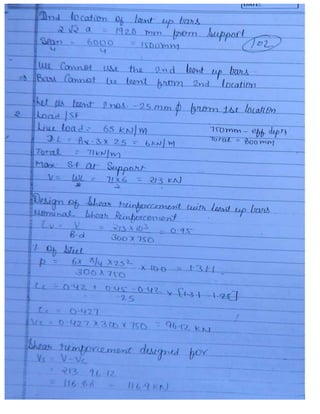 2nd location of bent up bars
2√2 a = 1920 mm from Support
Span/4 = 6000/4 = 1500mm
102
We Cannot use the 2nd bent up bars
⇒ Bars Cannot be bent from 2nd location
Let us bent 2nos - 25mm ϕ from 1st location
2 Load / SF
Live load = 65 KN/m 750mm - eff depth
DL = 0.3 x 25 = 6KN/m Total = 800mm
Total = 71KN/m
Max SF at Support
V = WL/2 = 71x6/2 = 213 KN
Design of Shear reinforcement with bent up bars
Nominal Shear Reinforcement
τv = V/B.d = 213x10³/300x750 = 0.95
% Of Steel
P = 6x π/4 x 25²/300x750 x 100 = 1.311
τc = 0.42 + 0.45-0.42/.25 x [1.31-1.25]
τc = 0.427
Vc = 0.427x300x750 = 96.12 KN
Shear reinforcement designed for
Vs = V-Vc
= 213 - 96.12
= 116.88 = 116.9KN